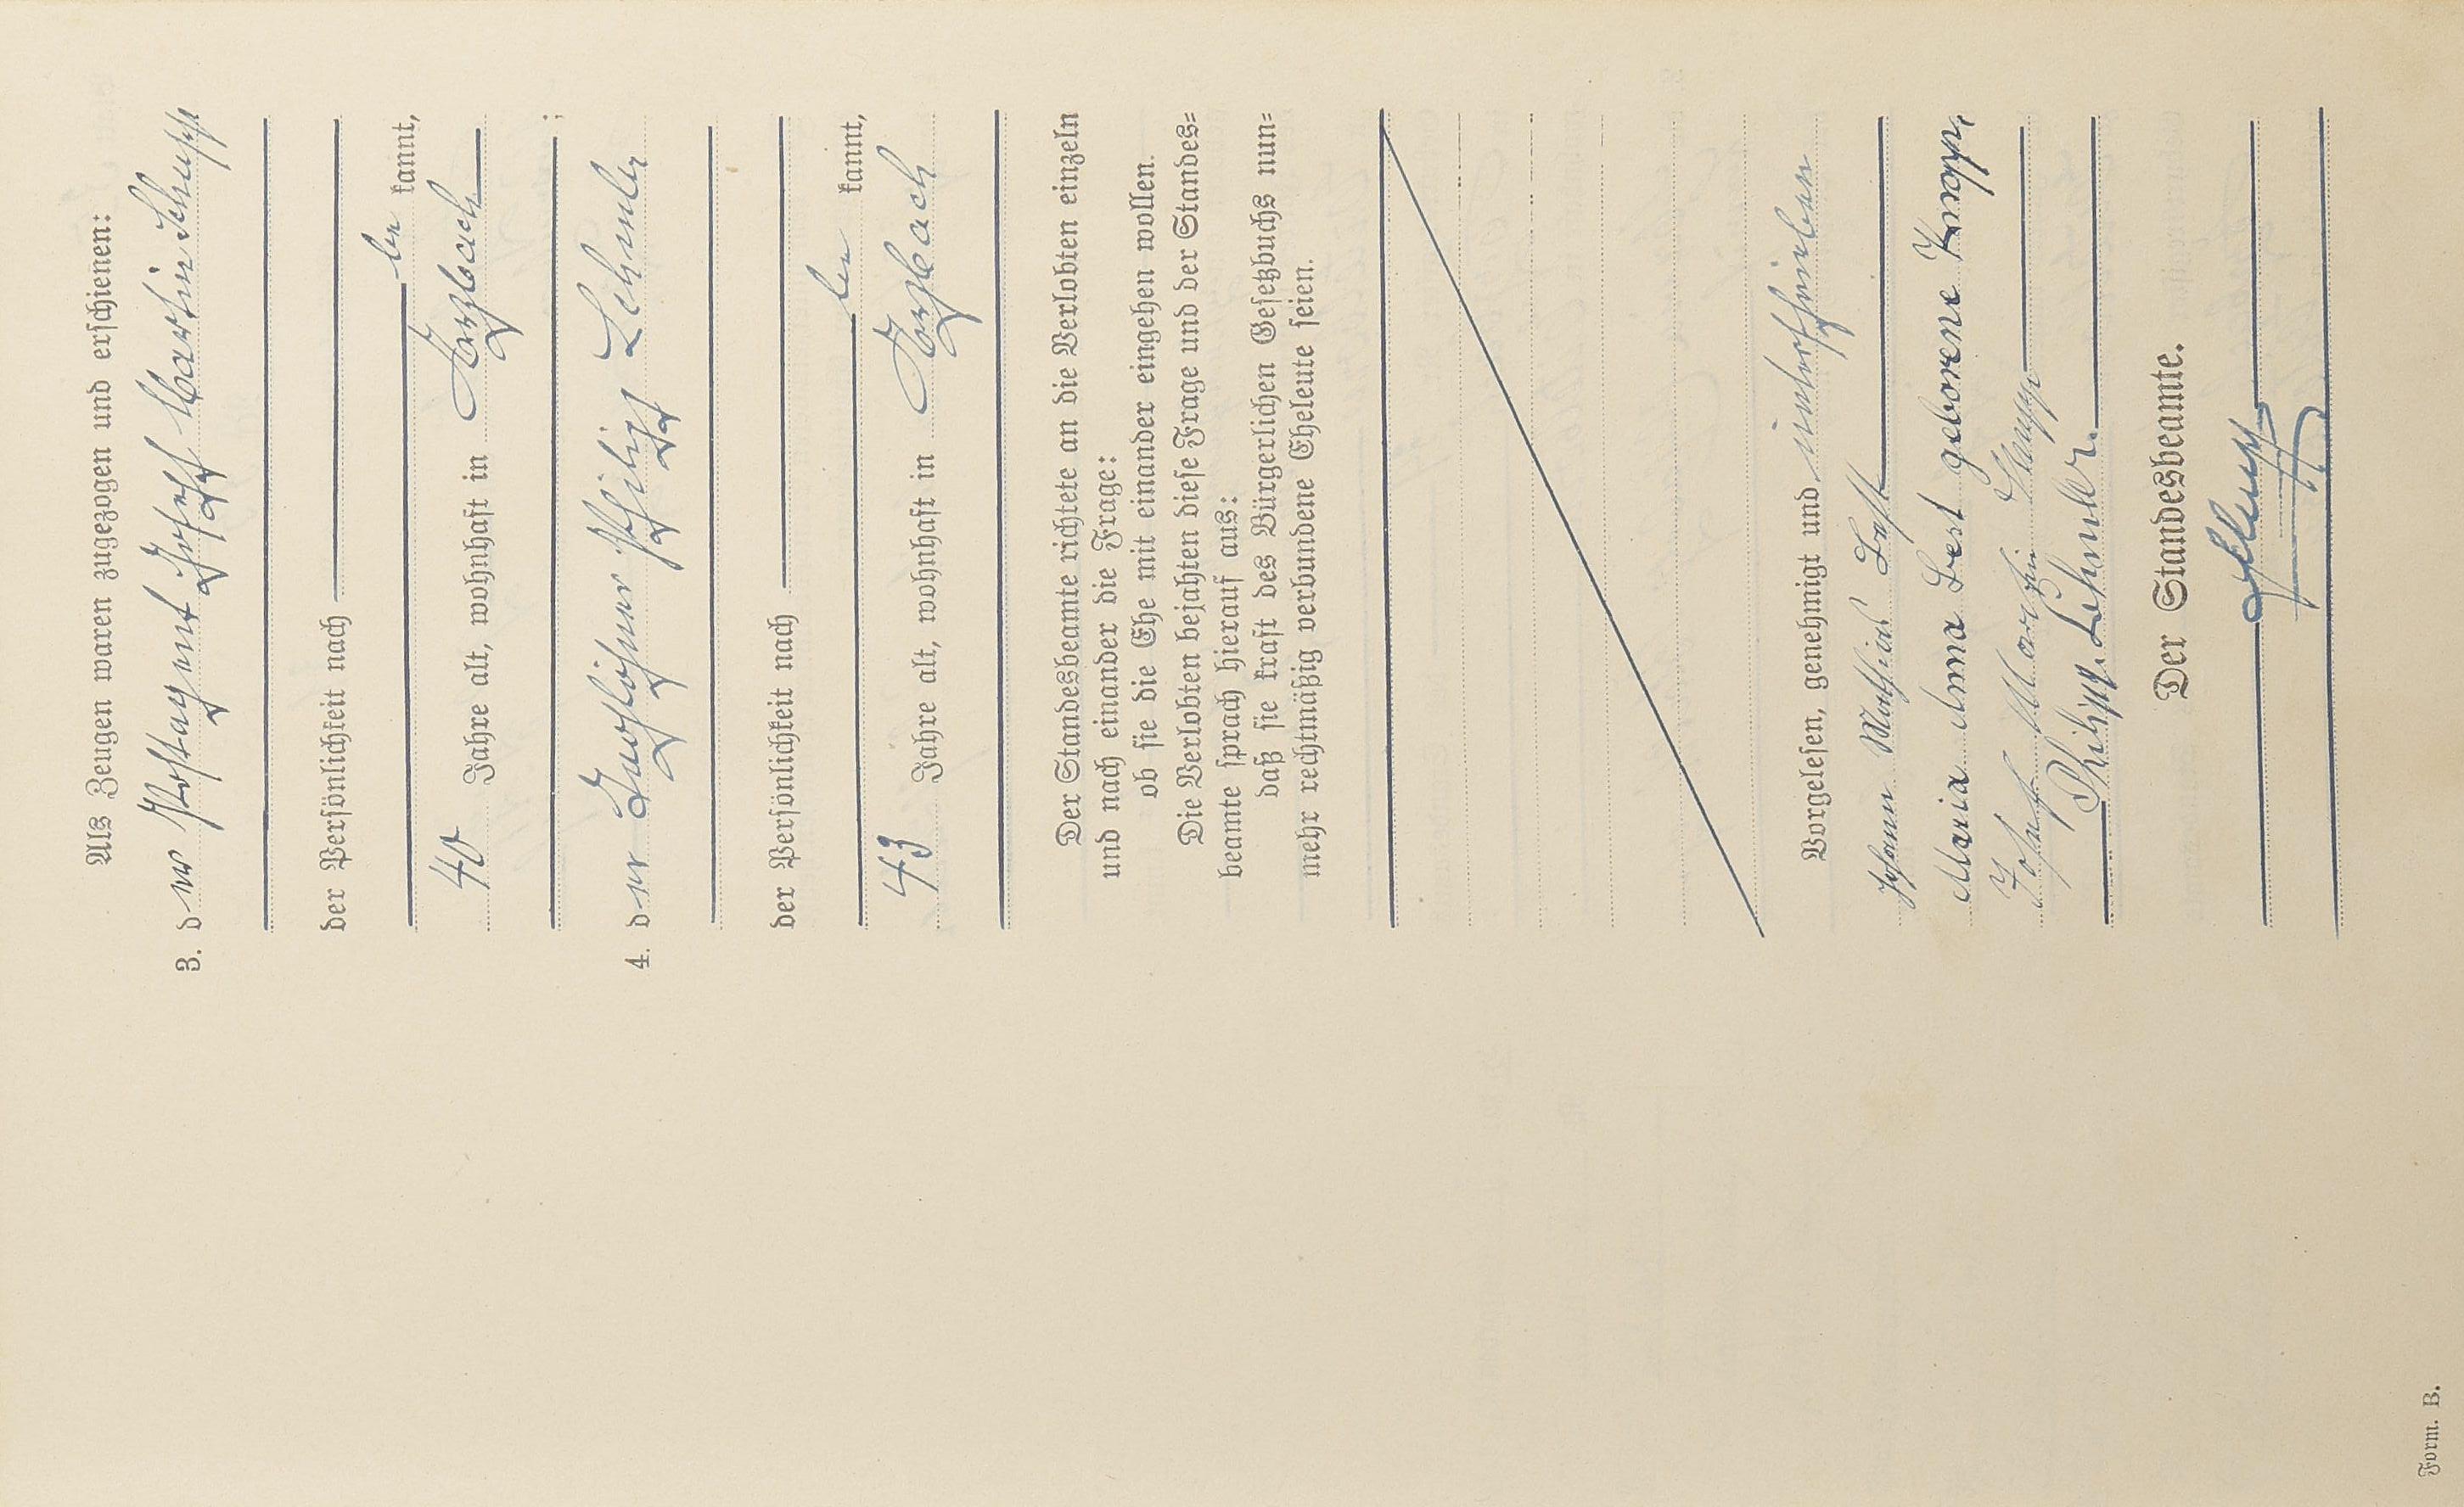 Als Zeugen waren zugezogen und erschienen:
3. der Postagent Josef Martin Schupp
der Persönlichkeit nach
be kannt,
40 Jahre alt, wohnhaft in
4. der Philipp Lehmler
der Persönlichkeit nach
be kannt,
43 Jahre alt, wohnhaft in
Der Standesbeamte richtete an die Verlobten einzeln
und nach einander die Frage:
ob sie die Ehe mit einander eingehen wollen.
Die Verlobten bejahten diese Frage und der Standes=
beamte sprach hierauf aus:
daß sie kraft des Bürgerlichen Gesetzbuchs nun=
mehr rechtmäßig verbundene Eheleute seien.
Vorgelesen, genehmigt und unterschrieben
Johann Mathias
Maria Anna geborene Knopp,
Josef Martin Schupp
Philipp Lehmler.
Der Standesbeamte.
Form. B.